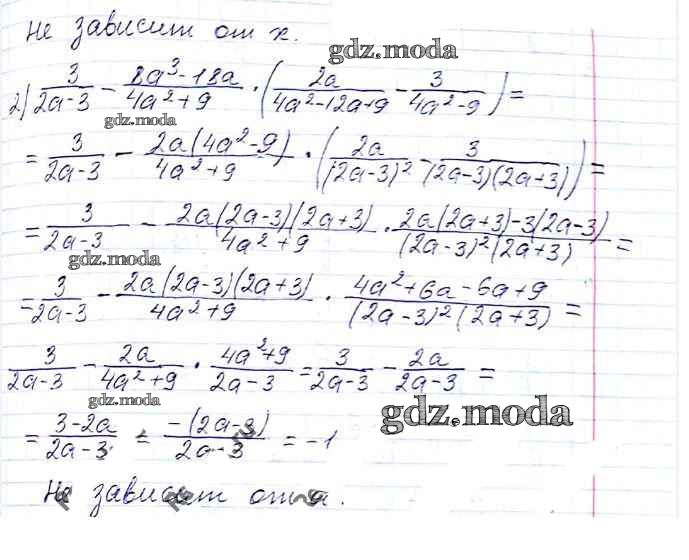 не зависит от x.
gdz.moda
2) 3/(2a-3) - (8a³-18a)/(4a²+9) · (2a/(4a²-12a+9) - 3/(4a²-9)) =
gdz.moda
= 3/(2a-3) - 2a(4a²-9)/(4a²+9) · (2a/(2a-3)² - 3/((2a-3)(2a+3))) =
= 3/(2a-3) - 2a(2a-3)(2a+3)/(4a²+9) · (2a(2a+3)-3(2a-3))/((2a-3)²(2a+3)) =
gdz.moda
= 3/(2a-3) - 2a(2a-3)(2a+3)/(4a²+9) · (4a²+6a-6a+9)/((2a-3)²(2a+3)) =
3/(2a-3) - 2a/(4a²+9) · (4a²+9)/(2a-3) = 3/(2a-3) - 2a/(2a-3) =
gdz.moda
gdz.moda
= (3-2a)/(2a-3) = -(2a-3)/(2a-3) = -1
Не зависит от a.